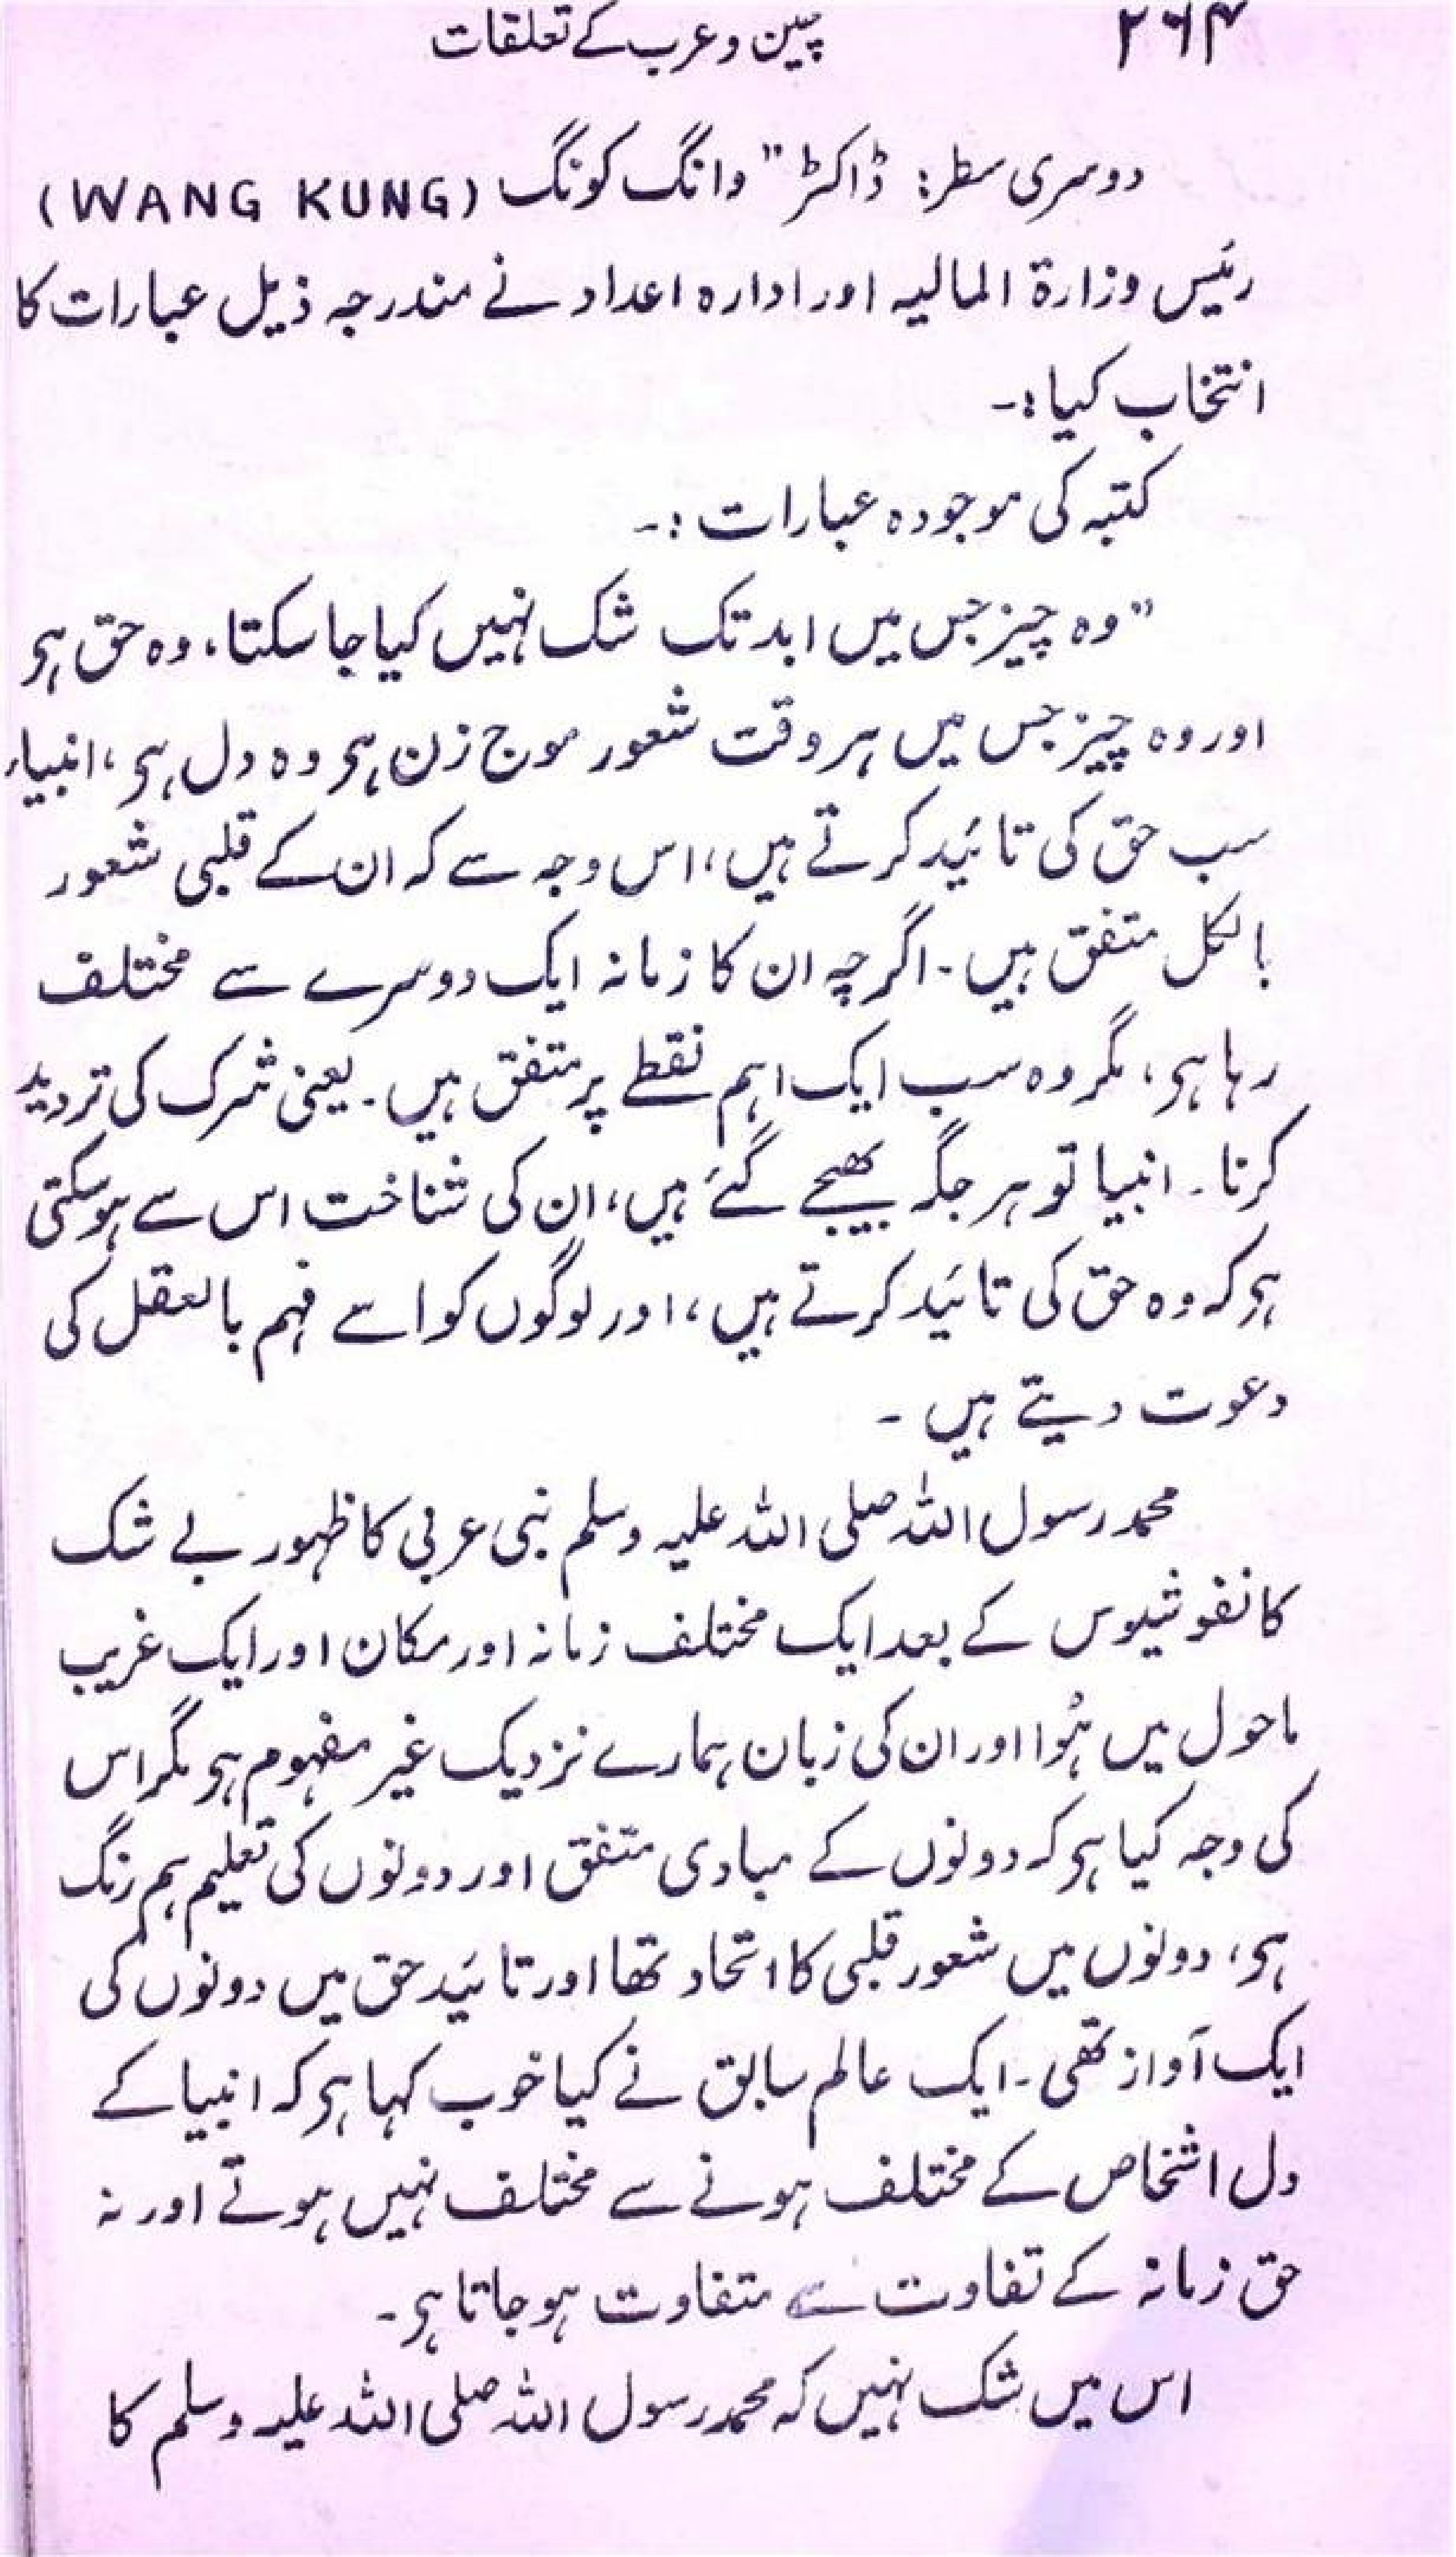 ۲۶۴ چین و عرب کے تعلقات
دوسری سطر: ڈاکٹر ”وانگ کونگ (WANG KUNG)
رئیس وزارۃ المالیہ اور ادارہ اعداد نے مندرجہ ذیل عبارات کا
انتخاب کیا:۔
کتبہ کی موجودہ عبارات :۔
”وہ چیز جس میں ابد تک شک نہیں کیا جا سکتا، وہ حق ہی
اور وہ چیز جس میں ہر وقت شعور موج زن ہی وہ دل ہی، انبیاء
سب حق کی تائید کرتے ہیں، اس وجہ سے کہ ان کے قلبی شعور
بالکل متفق ہیں۔ اگرچہ ان کا زمانہ ایک دوسرے سے مختلف
رہا ہی، مگر وہ سب ایک اہم نقطے پر متفق ہیں۔ یعنی شرک کی تردید
کرنا۔ انبیا تو ہر جگہ بھیجے گئے ہیں، ان کی شناخت اس سے ہو سکتی
ہی کہ وہ حق کی تائید کرتے ہیں، اور لوگوں کو اسے فہم بالعقل کی
دعوت دیتے ہیں۔
محمد رسول اللہ صلی اللہ علیہ وسلم نبی عربی کا ظہور بے شک
کانفوشیوس کے بعد ایک مختلف زمانہ اور مکان اور ایک غریب
ماحول میں ہُوا اور ان کی زبان ہمارے نزدیک غیر مفہوم ہی مگر اس
کی وجہ کیا ہی کہ دونوں کے مبادی متفق اور دونوں کی تعلیم ہم رنگ
ہی، دونوں میں شعور قلبی کا اتحاد تھا اور تائید حق میں دونوں کی
ایک آواز تھی۔ ایک عالم سابق نے کیا خوب کہا ہی کہ انبیا کے
دل اشخاص کے مختلف ہونے سے مختلف نہیں ہوتے اور نہ
حق زمانہ کے تفاوت سے متفاوت ہو جاتا ہی۔
اس میں شک نہیں کہ محمد رسول اللہ صلی اللہ علیہ وسلم کا